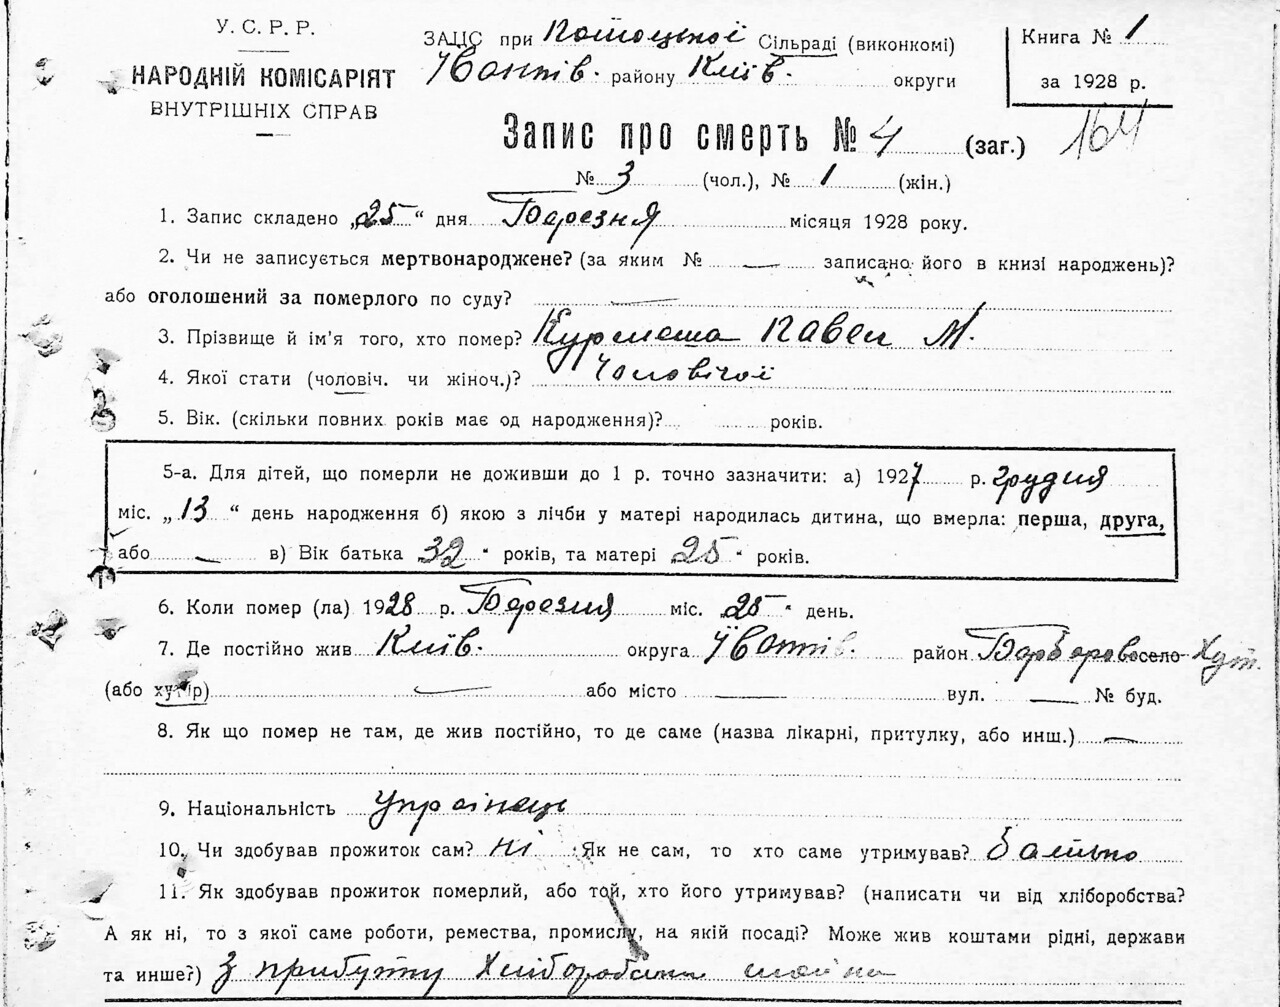 У. С. Р. Р.
НАРОДНІЙ КОМІСАРІЯТ
ВНУТРІШНІХ СПРАВ
ЗАЦС при Потоцької Сільраді (виконкомі)
району Київ. округи
Книга № 1
за 1928 р.
Запис про смерть № 4 (заг.) 164
№ 3 (чол.), № 1 (жін.)
1. Запис складено „25“ дня Березня місяця 1928 року.
2. Чи не записується мертвонароджене? (за яким № — записано його в книзі народжень)?
або оголошений за померлого по суду? —
3. Прізвище й ім'я того, хто помер? Павел М.
4. Якої стати (чоловіч. чи жіноч.)? Чоловічої
5. Вік. (скільки повних років має од народження)? років.
5-а. Для дітей, що померли не доживши до 1 р. точно зазначити: а) 1927 р. грудня
міс. „13“ день народження б) якою з лічби у матері народилась дитина, що вмерла: перша, друга,
або — в) Вік батька 32 років, та матері 25 років.
6. Коли помер (ла) 1928 р. Березня міс. 25 день.
7. Де постійно жив Київ. округа район село Хут.
(або хутір) — або місто — вул. — № буд.
8. Як що помер не там, де жив постійно, то де саме (назва лікарні, притулку, або инш.) —
9. Національність Українець
10. Чи здобував прожиток сам? Ні Як не сам, то хто саме утримував? Батько
11. Як здобував прожиток померлий, або той, хто його утримував? (написати чи від хліборобства?
А як ні, то з якої саме роботи, ремества, промислу, на якій посаді? Може жив коштами рідні, держави
та инше?) З прибутку